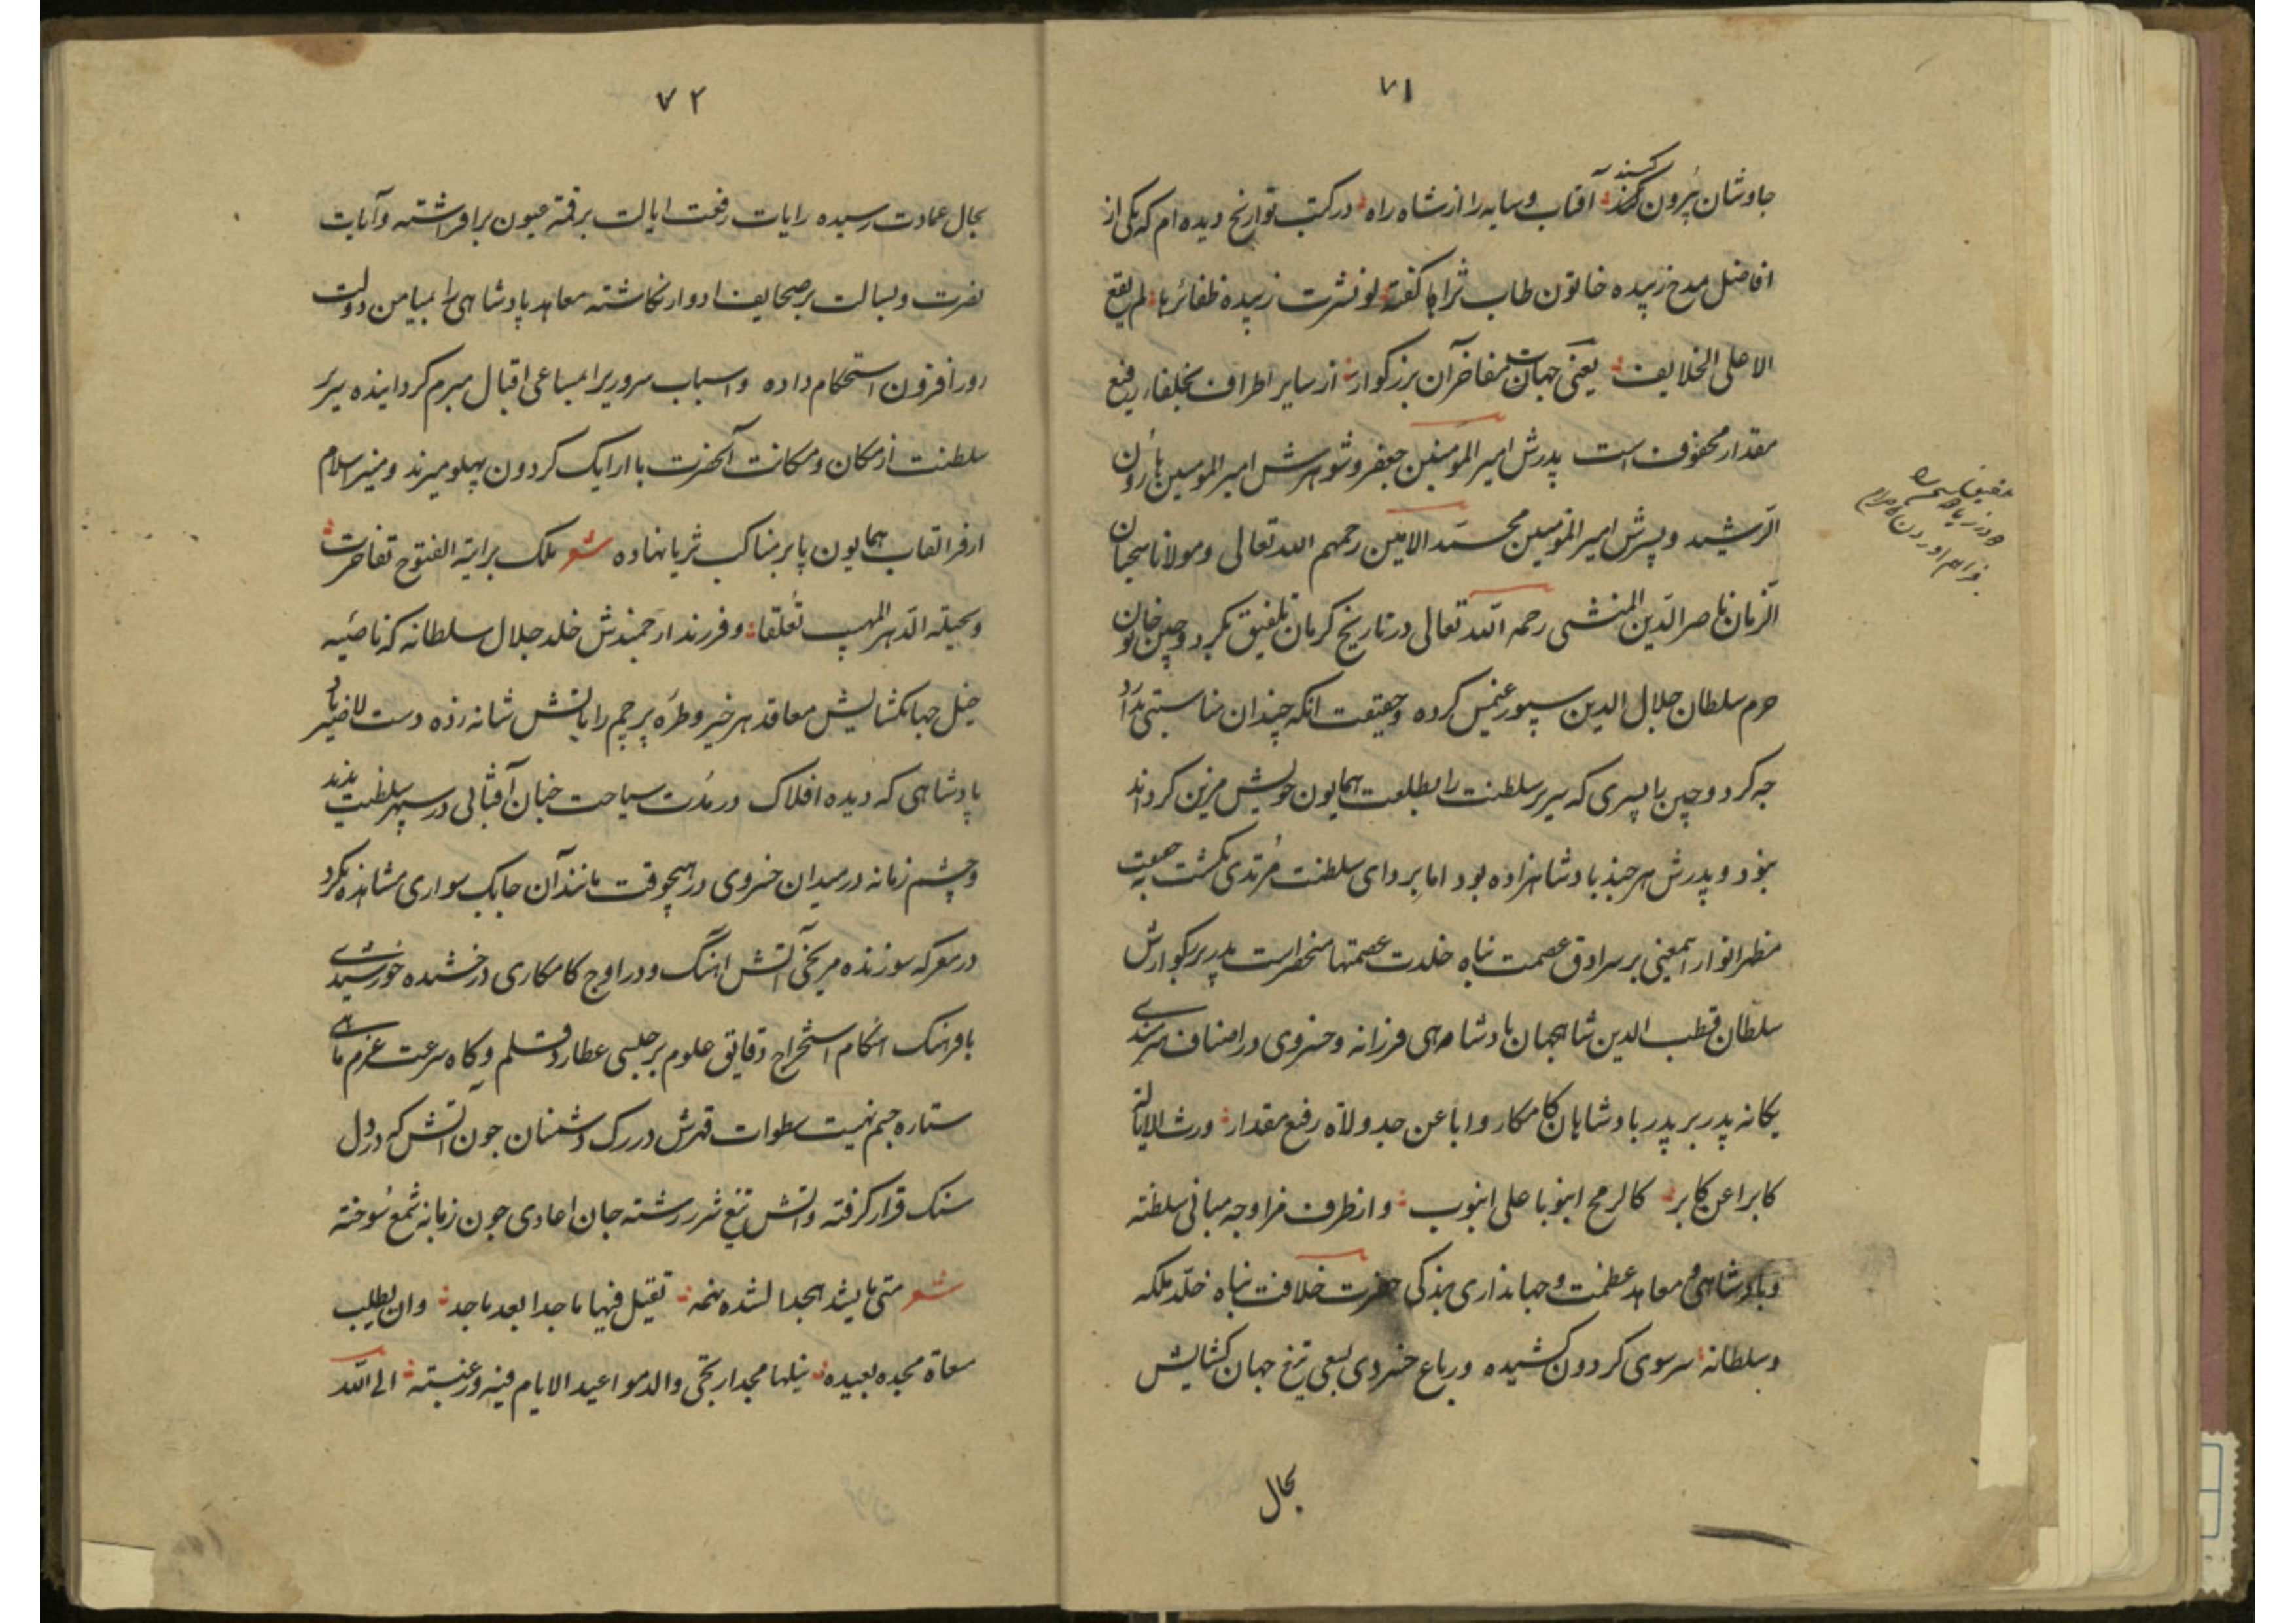 ۷۱
جاوشان بیرون کنند آفتاب و سایه را از شاه راه در کتب تواریخ دیده ام که یکی از
افاضل مدح زبیده خاتون طاب ثراها کفته لو نشرت زبیده ظفائرها لم یقع
الا علی الخلایف یعنی جهات مفاخر آن بزرکوار از سایر اطراف بخلفاء رفیع
مقدار محفوف است پدرش امیر المومنین جعفر و شوهرش امیر المومنین هارون
الرشید و پسرش امیر المومنین محمد الامین رحمهم الله تعالی و مولانا سحبان
الزمان ناصر الدین المنشی رحمه الله تعالی در تاریخ کرمان تلفیق بکردوچین خاتون
حرم سلطان جلال الدین سیورغتمش کرده و حقیقت انکه چندان مناسبتی ندارد
چه کردوچین با پسری که سریر سلطنت را بطلعت همایون خویش مزین کرداند
نبود و پدرش هر چند پادشاهزاده بود اما بردای سلطنت مرتدی نکشت حقیقت
مظهر انوار این معنی بر سرادق عصمت پناه خلدت عصمتها منحصر است پدر بزرکوارش
سلطان قطب الدین شاهجهان پادشاهی فرزانه و خسروی در اصناف هنرمندی
یکانه پدر بر پدر پادشاهان کامکار و ابا عن جد ولاة رفیع مقدار ورث الایالة
کابرا عن کابر کالرمح انبوبا علی انبوب و از طرف مزاوجه مبانی سلطنة
و پادشاهی و معاهد عظمت و جهانداری بندکی حضرت خلافت پناه خلد ملکه
و سلطانه سر سوی کردون کشیده و رباع خسروی بسعی تیغ جهان کشایش
بحال
۷۲
بحال عمادت رسیده رایات رفعت ایالت بر قمة عیون برافراشته و آیات
نصرت و بسالت بر صحایف ادوار نکاشته معاهد پادشاهی را بمیامن دولت
روز افزون استحکام داده و اسباب سروریرا بمساعی اقبال مبرم کردانیده سریر
سلطنت از مکان و مکانت آنحضرت با ارایک کردون پهلو میزند و منبر اسلام
از فر القاب همایون پا بر مناکب ثریا نهاده شعر ملک برایة الفتوح تفاخرت
و بحبله الدهر المهیب تعلقا و فرزند ارجمندش خلد جلال سلطانه که ناصیه
خیل جهانکشایش معاقد هر خیر و طره پرچم رایاتش شانه زده دست لاضیر باد
پادشاهی که دیده افلاک در مدت سیاحت چنان آفتابی در سپهر سلطنت ندید
و چشم زمانه در میدان خسروی در هیچوقت مانند آن چابک سواری مشاهده نکرد
در معرکه سوزنده مریخی آتش اهنک و در اوج کامکاری درخشنده خورشیدی
با فرهنک هنکام استخراج دقایق علوم برجیسی عطارد قلم و کاه سرعت عزم ماهی
ستاره حشم نهیب سطوات قهرش در رک دشمنان چون آتش که در دل
سنک قرار کرفته و آتش تیغ شررش رشته جان اعادی چون زبانه شمع سوخته
شعر متی ما یشد مجدا یشده بهمه تقیل فیها ماجدا بعد ماجد و ان یطلب
مسعاة مجده بعیده ینلها بجد اریحی و والد مواعید الایام فیه و رغبته الی الله